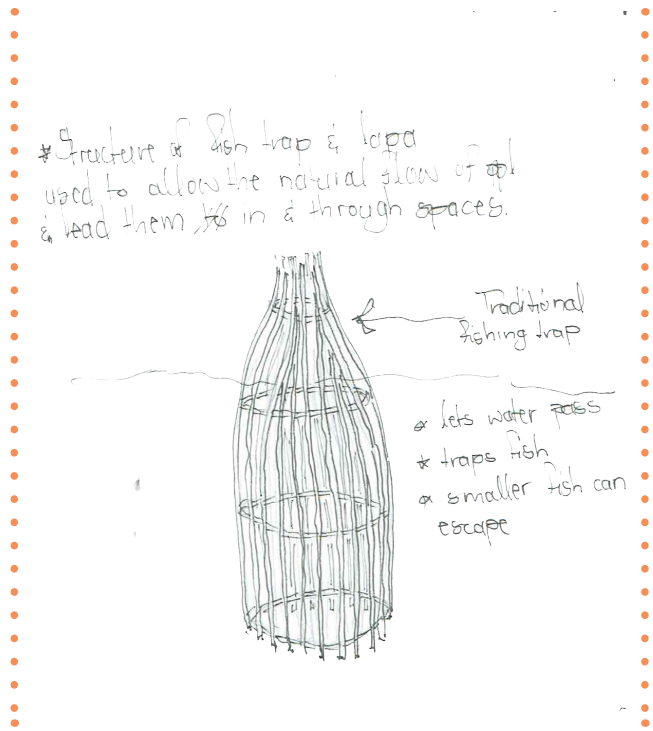 * Structure of fish trap & lapa
used to allow the natural flow of ppl
& lead them to in & through spaces.
Traditional
fishing trap
* lets water pass
* traps fish
* smaller fish can
escape